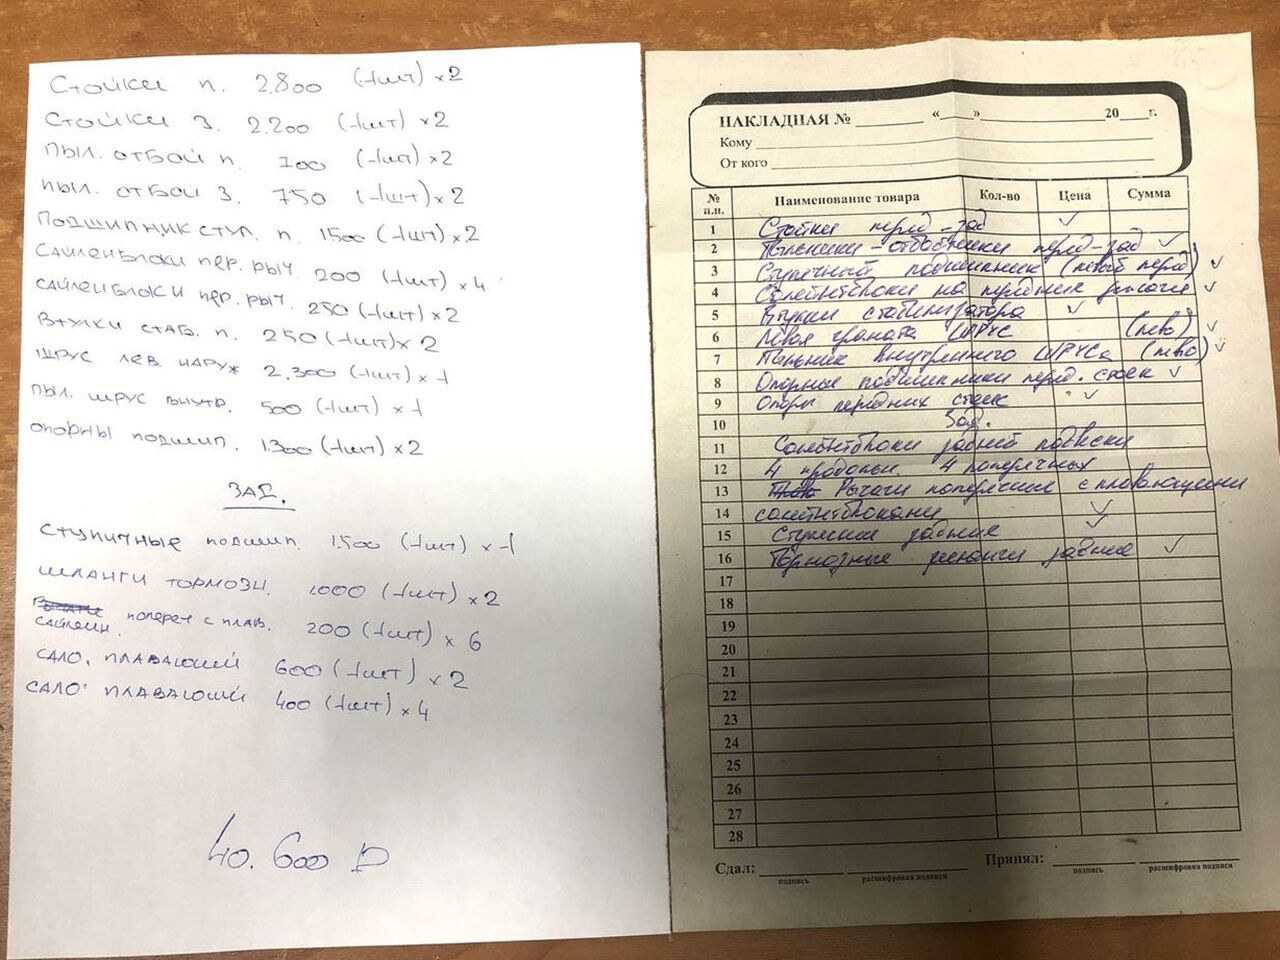 Стойки п. 2.800 (1шт) ×2
Стойки З. 2.200 (1шт) ×2
пыл. отбой п. 700 (1шт) ×2
пыл. отбой З. 750 (1шт) ×2
Подшипник ступ. п. 1500 (1шт) ×2
Сайленблоки пер. рыч. 200 (1шт) ×4
Сайленблоки пер. рыч. 250 (1шт) ×2
Втулки стаб. п. 250 (1шт) × 2
Шрус лев. наруж 2.300 (1шт) ×1
пыл. шрус внутр. 500 (1шт) ×1
опорны подшип. 1300 (1шт) ×2
ЗАД.
Ступичные подшип. 1.500 (1шт) ×1
шланги тормозн. 1.000 (1шт) ×2
сайлен. попереч с плав. 200 (1шт) × 6
сало. плавающий 600 (1шт) ×2
сало. плавающий 400 (1шт) ×4
40.600 р
НАКЛАДНАЯ № « » 20 г.
Кому
От кого
№ п.п. Наименование товара Кол-во Цена Сумма
1 Стойки перед-зад ✓
2 Пыльники-отбойники перед-зад ✓
3 Ступичный подшипник (левый перед) ✓
4 Сайлентблоки на передние рычаги ✓
5 Втулки стабилизатора ✓
6 Левая граната ШРУС (лево) ✓
7 Пыльник внутреннего ШРУСа (лево) ✓
8 Опорные подшипники перед. стоек ✓
9 Опоры передних стоек ✓
10 Зад.
11 Сайлентблоки задней подвески
12 4 продольн. 4 поперечных
13 Рычаги поперечные с плавающими
14 сайлентблоками ✓
15 Ступични задние ✓
16 Тормозные шланги задние ✓
17
18
19
20
21
22
23
24
25
26
27
28
Сдал: Принял:
подпись расшифровка подписи подпись расшифровка подписи